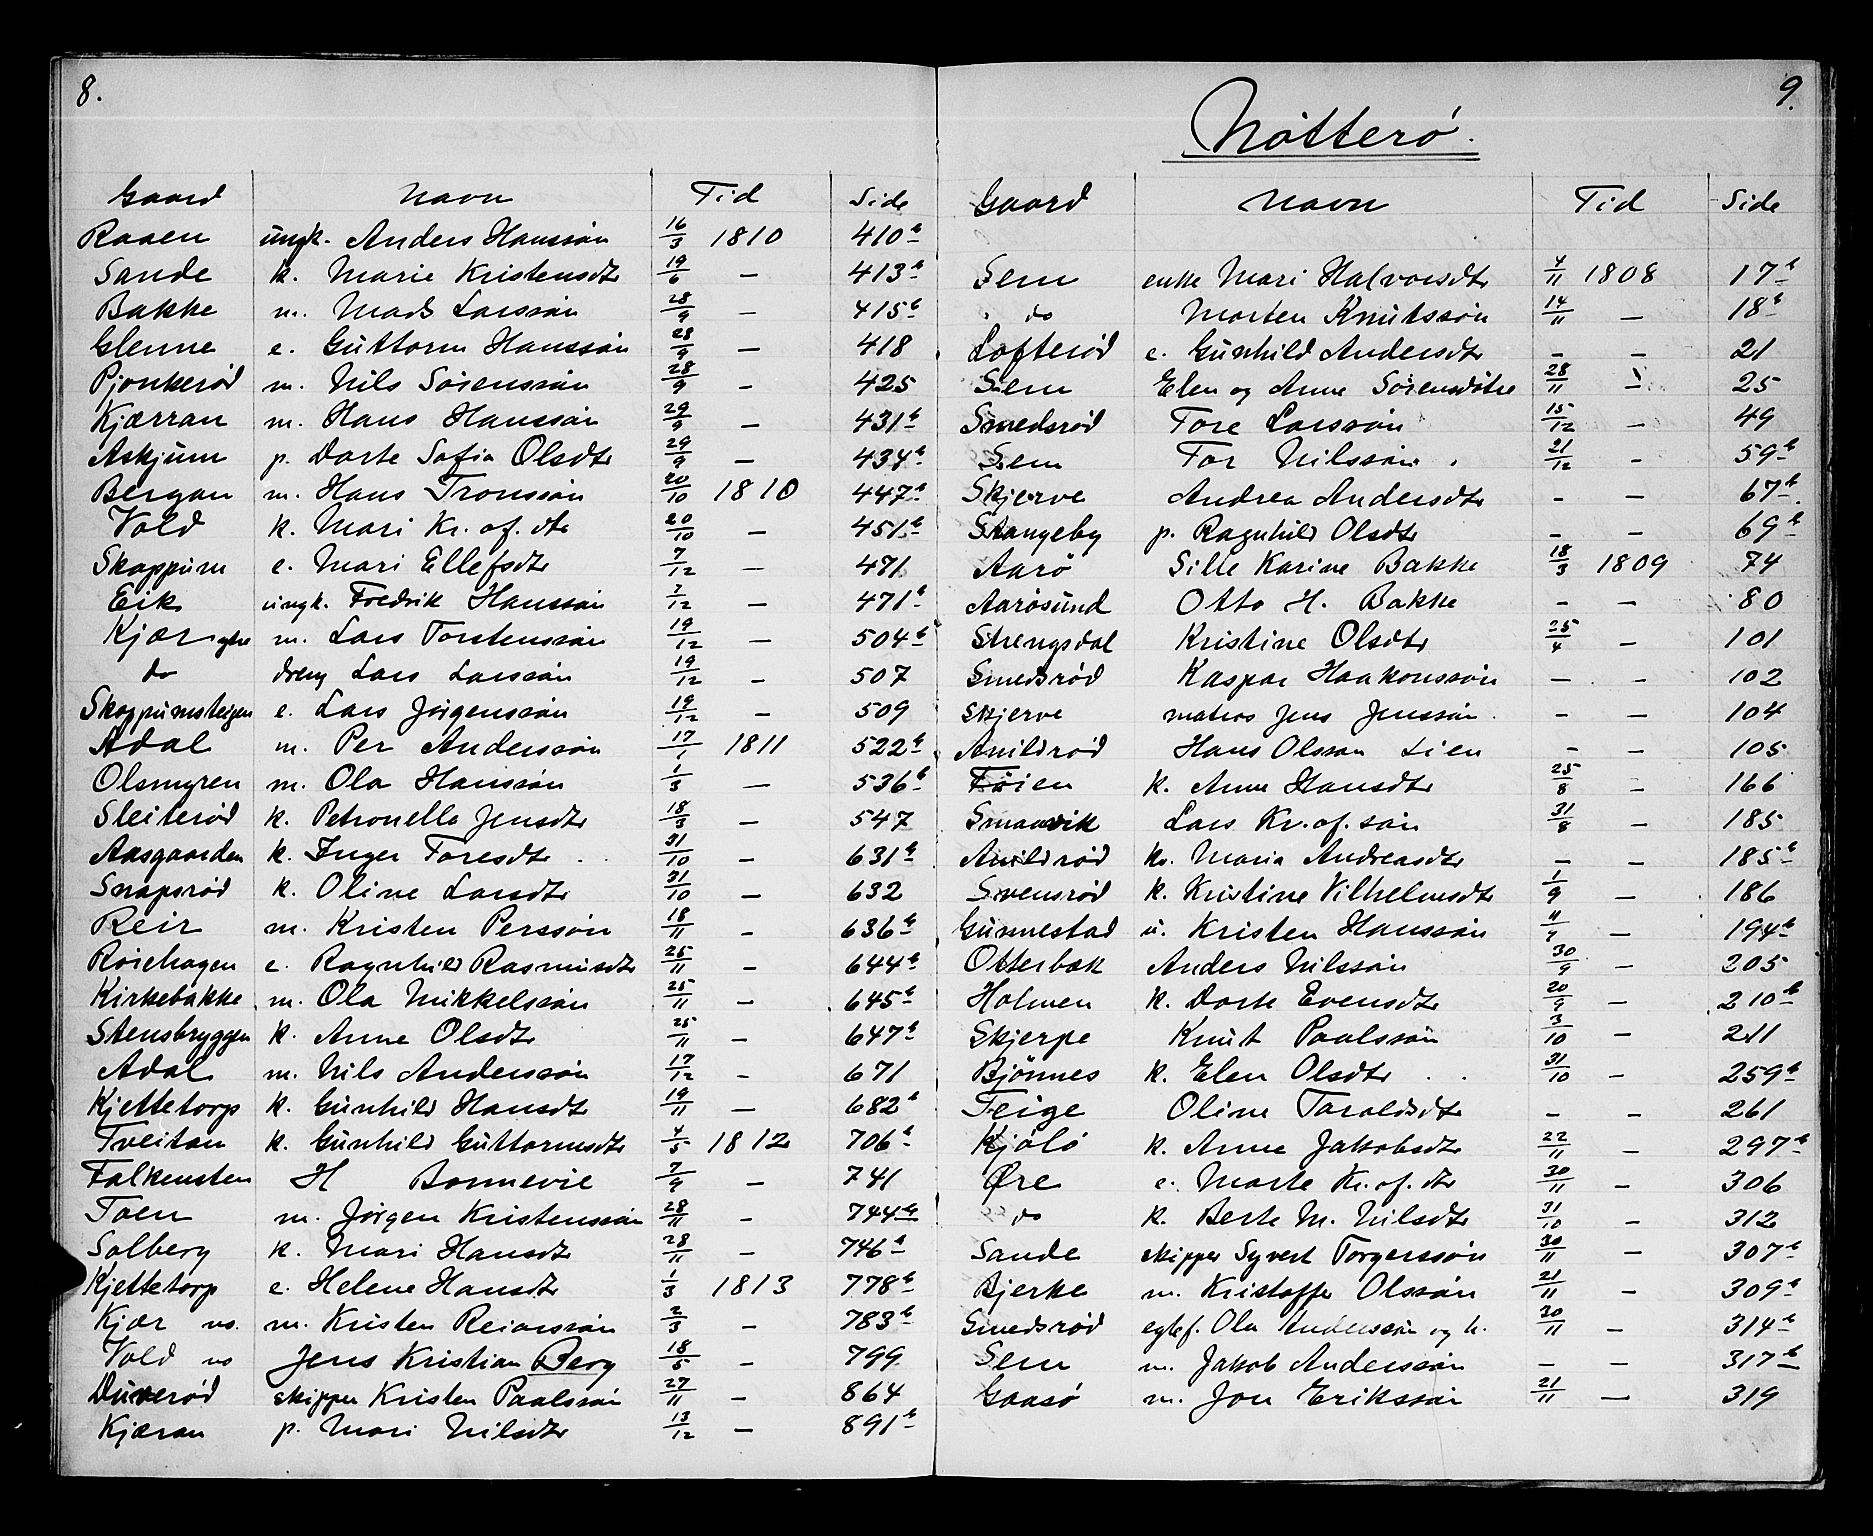 8.
Gaard Navn Tid Side
Raaen ungk. Anders Hanssøn 16/3 1810 410b
Sande k. Marie Kristensdtr 19/6 — 413b
Bakke m. Mads Larssøn 28/9 — 415b
Glenne e. Guttorm Hanssøn 28/9 — 418
Pjonkerød m. Nils Sørenssøn 28/9 — 425
Kjærran m. Hans Hanssøn 29/9 — 431b
Askjum p. Dorte Sofia Olsdtr 29/9 — 434b
Bergan m. Hans Tronssøn 20/10 1810 447b
Vold k. Mari Kr. of. dtr 20/10 — 451b
Skoppum e. Mari Ellefsdtr 7/12 — 471
Eik ungk. Fredrik Hanssøn 7/12 — 471b
Kjær m. Lars Torstenssøn 19/12 — 504b
do dreng Lars Larssøn 19/12 — 507
Skoppumsteigen e. Lars Jørgenssøn 19/12 — 509
Adal m. Per Anderssøn 17/1 1811 522b
Olsmyren m. Ola Hanssøn 1/3 — 536b
Sleiterød k. Petronella Jensdtr 18/3 — 547
Aasgaarden k. Inger Toresdtr 31/10 — 631b
Snapsrød k. Oline Larsdtr 31/10 — 632
Reir m. Kristen Perssøn 18/11 — 636b
Røiehagen e. Ragnhild Rasmusdtr 25/11 — 644b
Kirkebakke m. Ola Mikkelssøn 25/11 — 645b
Stensbryggen k. Anne Olsdtr 25/11 — 647b
Adal m. Nils Anderssøn 17/12 — 671
Kjettetorp k. Gunhild Hansdtr 19/11 — 682b
Tveitan k. Gunhild Guttormsdtr 4/5 1812 706b
Falkensten H Bonnevie 7/9 — 741
Toen m. Jørgen Kristenssøn 28/11 — 744b
Solberg k. Mari Hansdtr 28/11 — 746b
Kjettetorp e. Helene Hansdtr 1/3 1813 778b
Kjær ns. m. Kristen Reiarssøn 2/3 — 783b
Vold ns Jens Kristian Berg 18/5 — 799
Duverød skipper Kristen Paalssøn 27/11 — 864
Kjæran p. Mari Nilsdtr 13/12 — 891b
9.
Nøtterø.
Gaard Navn Tid Side
Sem enke Mari Halvorsdtr 4/11 1808 17b
do Morten Knutssøn 14/11 — 18b
Lofterød e. Gunhild Andersdtr — — 21
Sem Elen og Anne Sørensdøtre 28/11 — 25
Smedsrød Tore Larssøn 15/12 — 49
Sem Tor Nilssøn 21/12 — 59b
Skjerve Andrea Andersdtr — — 67b
Stangeby p. Ragnhild Olsdtr — — 69b
Aarø Sille Karine Bakke 18/3 1809 74
Aarøsund Otto H. Bakke — — 80
Strengsdal Kristine Olsdtr 25/4 — 101
Smedsrød Kaspar Haakonssøn — — 102
Skjerve matros Jens Jenssøn — — 104
Anildrød Hans Olssøn Lien — — 105
Føien k. Anne Hansdtr 25/8 — 166
Smaavik Lars Kr. of. søn 31/8 — 185
Anildrød k. Maria Andreasdtr — — 185b
Svensrød k. Kristine Vilhelmsdtr 1/9 — 186
Gunnestad u. Kristen Hanssøn — 194b
Otterbæk Anders Nilssøn 30/9 — 205
Holmen k. Dorte Evensdtr 20/9 — 210b
Skjerpe Knut Paalssøn 3/10 — 211
Bjønnes k. Elen Olsdtr 31/10 — 259b
Teige Oline Taraldsdtr — — 261
Kjøló k. Anne Jakobsdtr 22/11 — 297b
Øre e. Marte Kr. of. dtr 30/11 — 306
do k. Berte M. Nilsdtr 31/10 — 312
Sande skipper Syvert Torgerssøn 30/11 — 307b
Bjerke m. Kristoffer Olssøn 21/11 — 309b
Smedsrød egtef. Ola Anderssøn og h. 30/11 — 314b
Sem m. Jakob Anderssøn — — 317b
Gaasø m. Jon Erikssøn 21/11 — 319